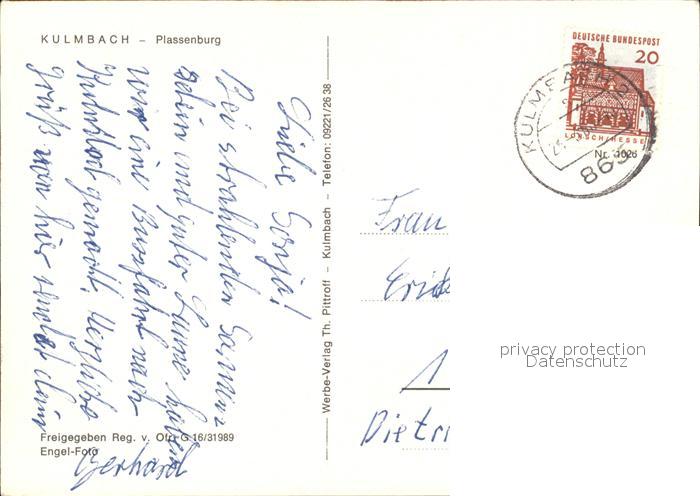 KULMBACH – Plassenburg
Liebe Sonja!
Bei strahlenden Sonnen
schein und guter Laune haben
wir eine Busfahrt nach
Kulmbach gemacht. Herzliche
Grüße von hier sendet dein
Gerhard
Freigegeben Reg. v. Ofr. G 16/31989
Engel-Foto
Werbe-Verlag Th. Pittroff – Kulmbach – Telefon: 09221/26 38
DEUTSCHE BUNDESPOST
20
LORSCH/HESSEN
KULMBACH 2
865
Nr. 1026
Frau
Erick
1
Dietri
privacy protection
Datenschutz